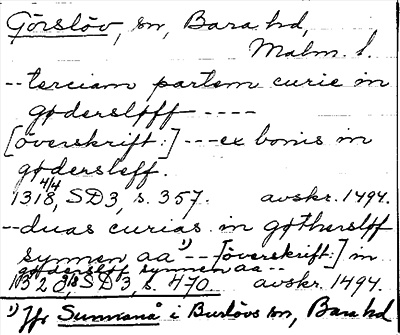 Görslöv, sn, Bara hd,
Malm. l.
-- terciam partem curie in
gødersløff ----
[överskrift:] --- ex bonis in
gødersleff.
1318 4/4, SD3, s. 357. avskr. 1494.
-- duas curias in gøthersløf
synnen aa 1) -- [överskrift:] in
gødersløf synnen aa --
1320, SD3, s. 470. avskr. 1494.
1) Jfr Sunnanå i Burlövs sn, Bara hd